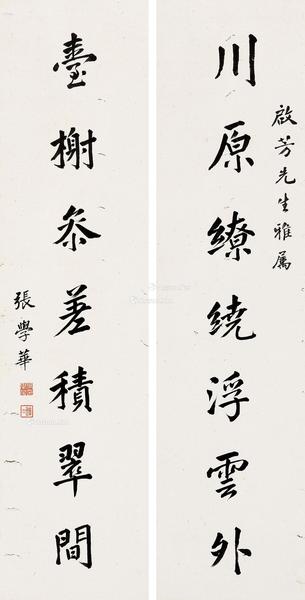 啟芳先生雅屬
川原繚繞浮雲外
臺榭參差積翠間
張學華